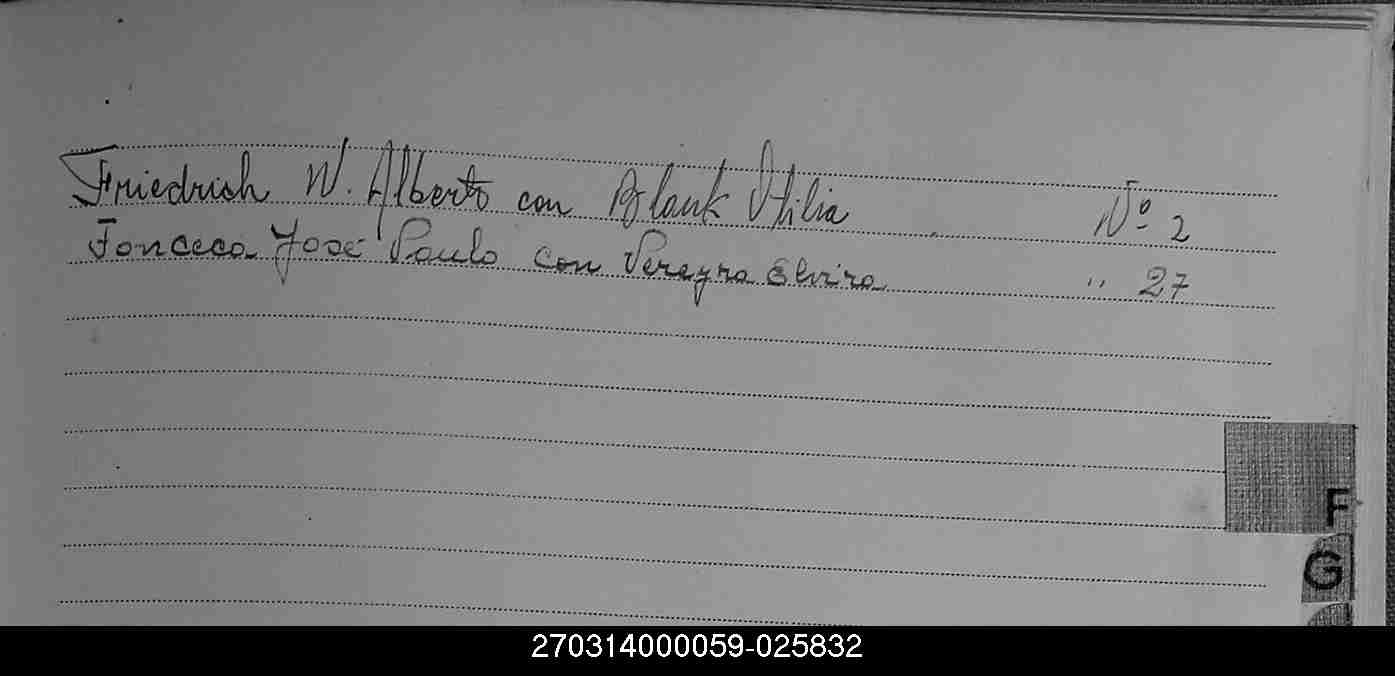 Friedrich W. Alberto con Blank Otilia Nº 2
Fonceca José Paulo con Pereyra Elvira " 27
F
G
270314000059-025832